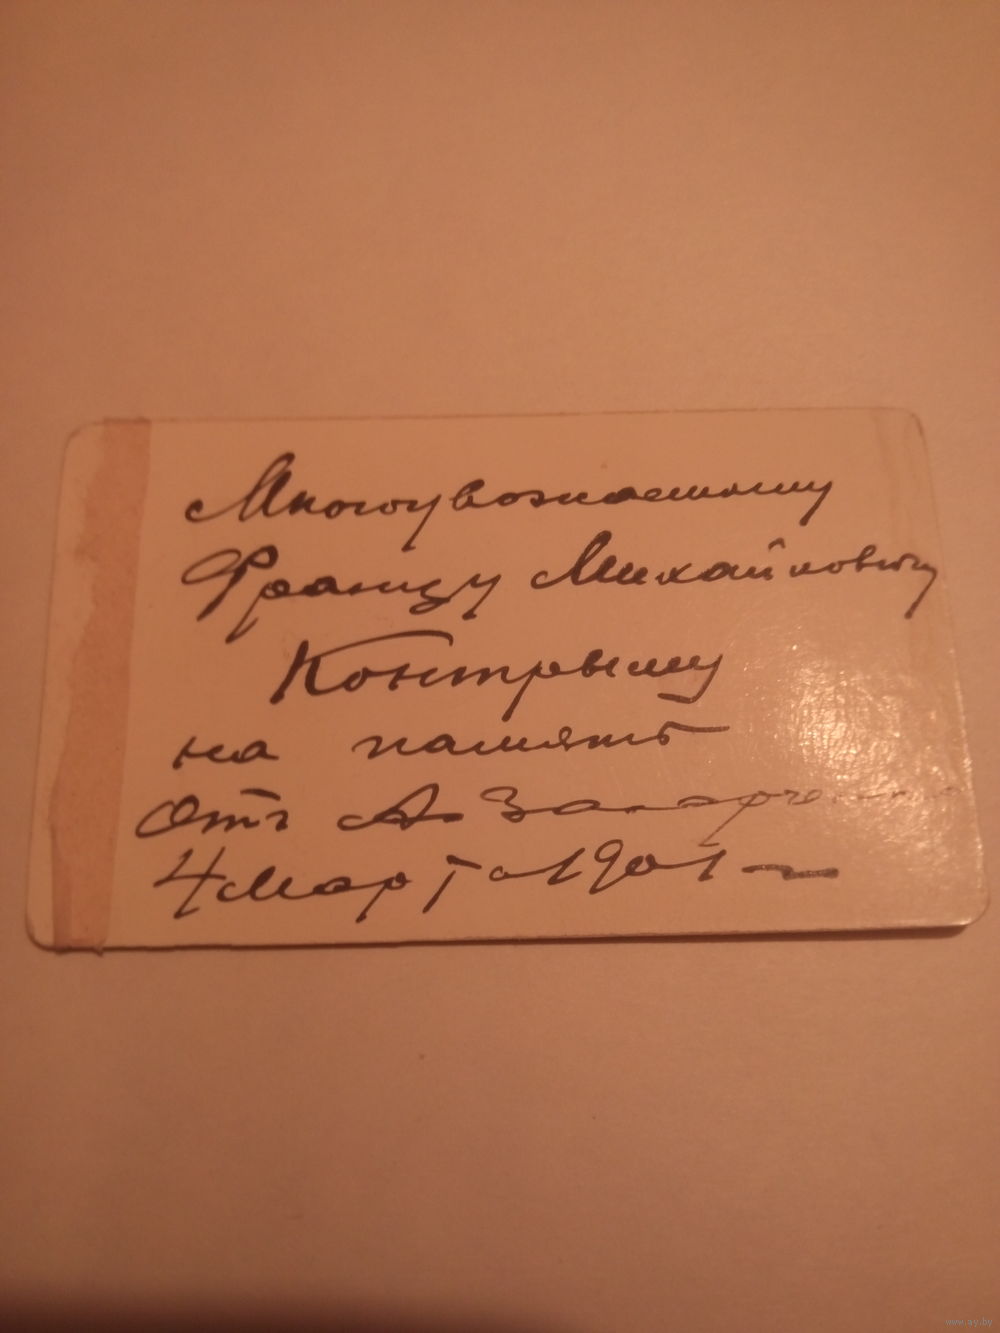 Многоуважаемому
Францу Михайловичу
Контрыму
на память
отъ А.
4 марта 1901 г
www.ay.by